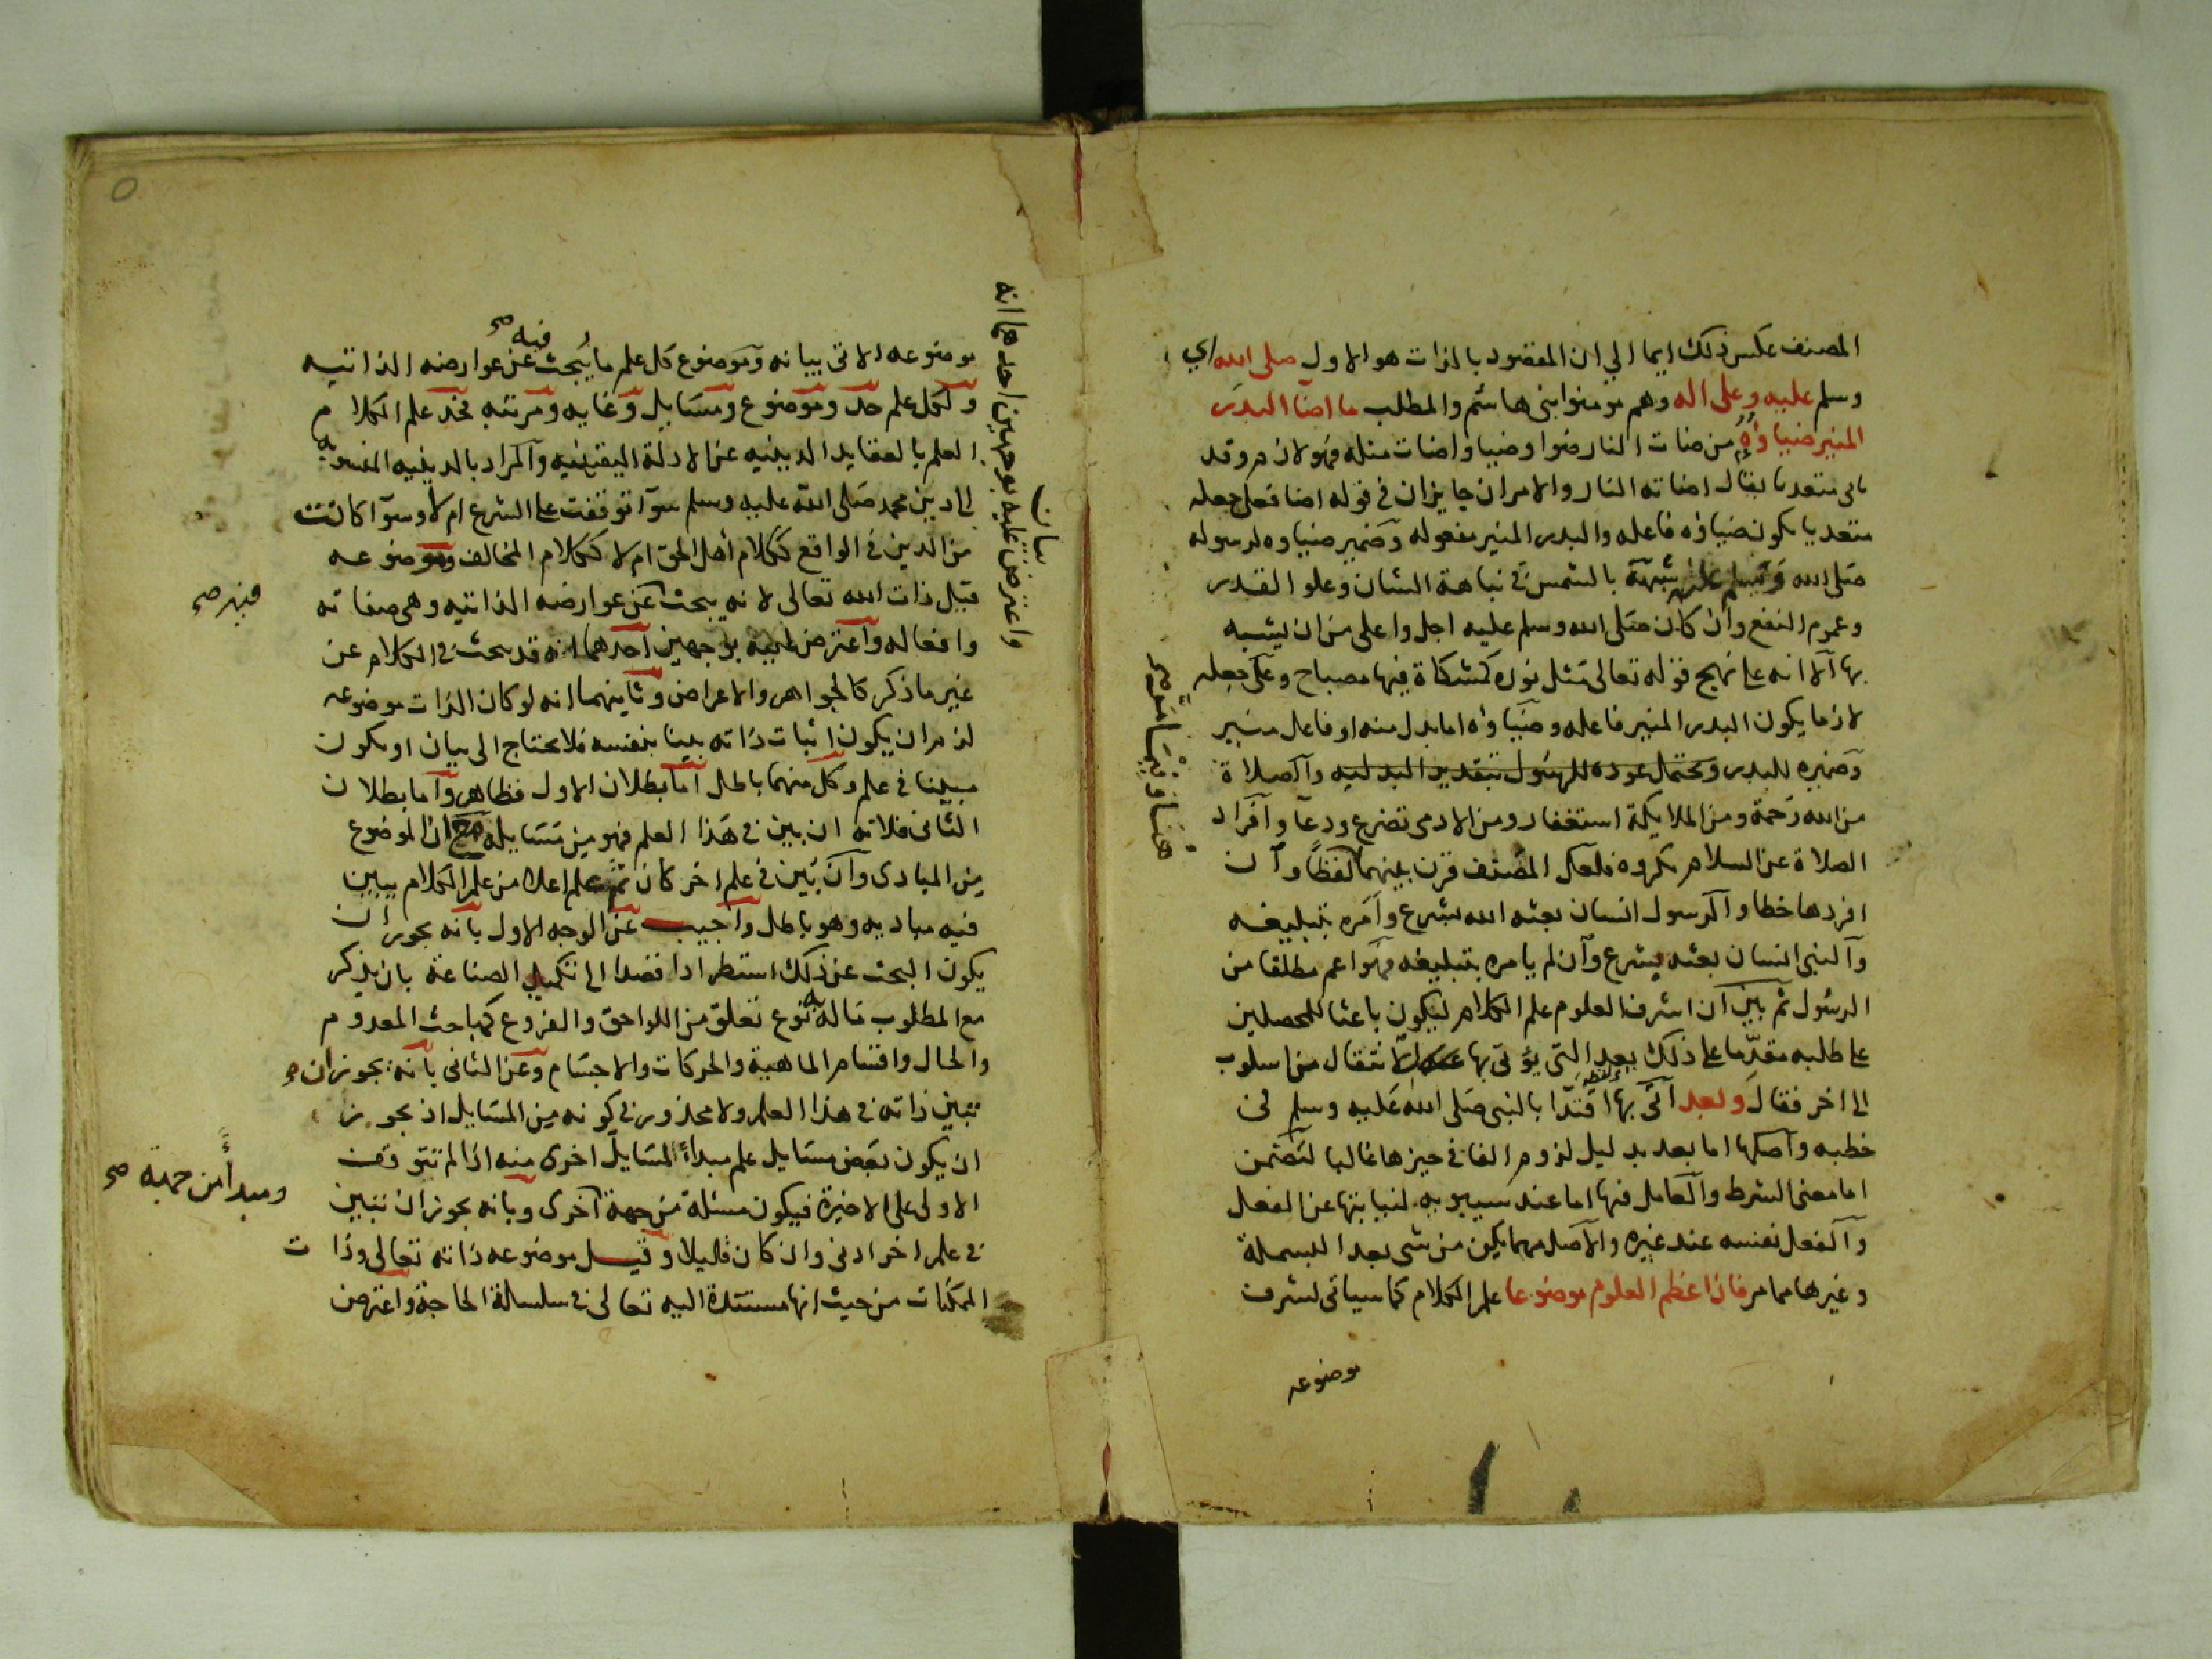 المصنف عكس ذلك ايما الي ان المقصود بالذات هو الاول صلى الله اي
وسلم عليه وعلى اله وهم مومنوا بنى هاشم والمطلب ما اضآ البدر
المنير ضياوه من ضات النار ضوا وضيا واضات مثله فهو لازم وقد
ياتى متعديا يقال اضاته النار والامران جايزان في قوله اضا فعلى جعله
متعديا يكون ضياؤه فاعله والبدر المنير مفعوله وضمير ضياوه لرسوله
صلى الله وسلم عليه شبهه بالشمس في نباهة الشان وعلو القدر
وعموم النفع وان كان صلى الله وسلم عليه اجل واعلى من ان يشبه
بها الا انه على نهج قوله تعالى مثل نوره كمشكاة فيها مصباح وعلى جعله
لازما يكون البدر المنير فاعله وضياوه اما بدل منه او فاعل منير
وضميره للبدر ويحتمل عوده للرسول بتقدير البدليه والصلاة
من الله رحمة ومن الملايكة استغفار ومن الادمى تضرع ودعآ وافراد
الصلاة عن السلام مكروه فلعل المصنف قرن بينهما لفظا وان
افردها خطا والرسول انسان بعثه الله بشرع وامره بتبليغه
والنبى انسان بعثه بشرع وان لم يامره بتبليغه فهو اعم مطلقا من
الرسول ثم بين ان اشرف العلوم علم الكلام ليكون باعثا للمحصلين
على طلبه مقدما على ذلك بعد التى يؤتى بها للانتقال من اسلوب
الى اخر فقال وبعد اتى بها اقتدا بالنبى صلى الله عليه وسلم فى
خطبه واصلها اما بعد بدليل لزوم الفا فى حيزها غالبا لتضمن
اما معنى الشرط والعامل فيها اما عند سيبويه لنيابتها عن الفعل
والفعل نفسه عند غيره والاصل مهما يكن من شى بعد البسملة
وغيرها مما مر فان اعظم العلوم موضوعا علم الكلام كما سياتى لشرف
موضوعه
موضوعه الاتى بيانه وموضوع كل علم ما يُبحث فيه صح عن عوارضه الذاتيه
ولكل علم حد وموضوع ومسايل وغايه ومرتبه فحد علم الكلام
العلم بالعقايد الدينيه عن الادلة اليقينيه والمراد بالدينيه المنسوبه
الى دين محمد صلى الله عليه وسلم سوآ توقفت على الشرع ام لا وسوآ كانت
من الدين فى الواقع ككلام اهل الحق ام لا ككلام المخالف وموضوعه
قيل ذات الله تعالى لانه يبحث عن عوارضه الذاتيه وهى صفاته
وافعاله واعترض عليه بوجهين احدهما انه قد يبحث فى الكلام عن
غير ما ذكر كالجواهر والاعراض وثانيهما انه لو كان الذات موضوعه
لزم ان يكون اثبات ذاته بينا بنفسه فلا يحتاج الى بيان او يكون
مبينا فى علم وكل منهما باطل اما بطلان الاول فظاهر واما بطلان
الثانى فلانه ان بين فى هذا العلم فهو من مسايله مع ان الموضوع
من المبادى وان بين فى علم اخر كان ثم علم اعلا من علم الكلام يبين
فيه مباديه وهو باطل واجيب عن الوجه الاول بانه يجوز ان
يكون البحث عن ذلك استطرادا قصدا الى تكميل الصناعة بان يذكر
مع المطلوب ماله به نوع تعلق من اللواحق والفروع كمباحث المعدوم
والحال واقسام الماهية والحركات والاجسام وعن الثانى بانه يجوز ان
تبين ذاته فى هذا العلم ولا محذور فى كونه من المسايل اذ يجوز
ان يكون بعض مسايل علم مبدأ لمسايل اخرى منه اذا لم تتوقف
الاولى على الاخيرة فيكون مسئلة من جهة اخرى وبانه يجوز ان تبين
فى علم اخر ادنى وان كان قليلا وقيل موضوعه ذاته تعالى وذات
الممكنات من حيث انها مستندة اليه تعالى فى سلسلة الحاجة واعترض
واعترض عليه بوجهين احدهما انه
بيان
ومبدأ من جهة صح